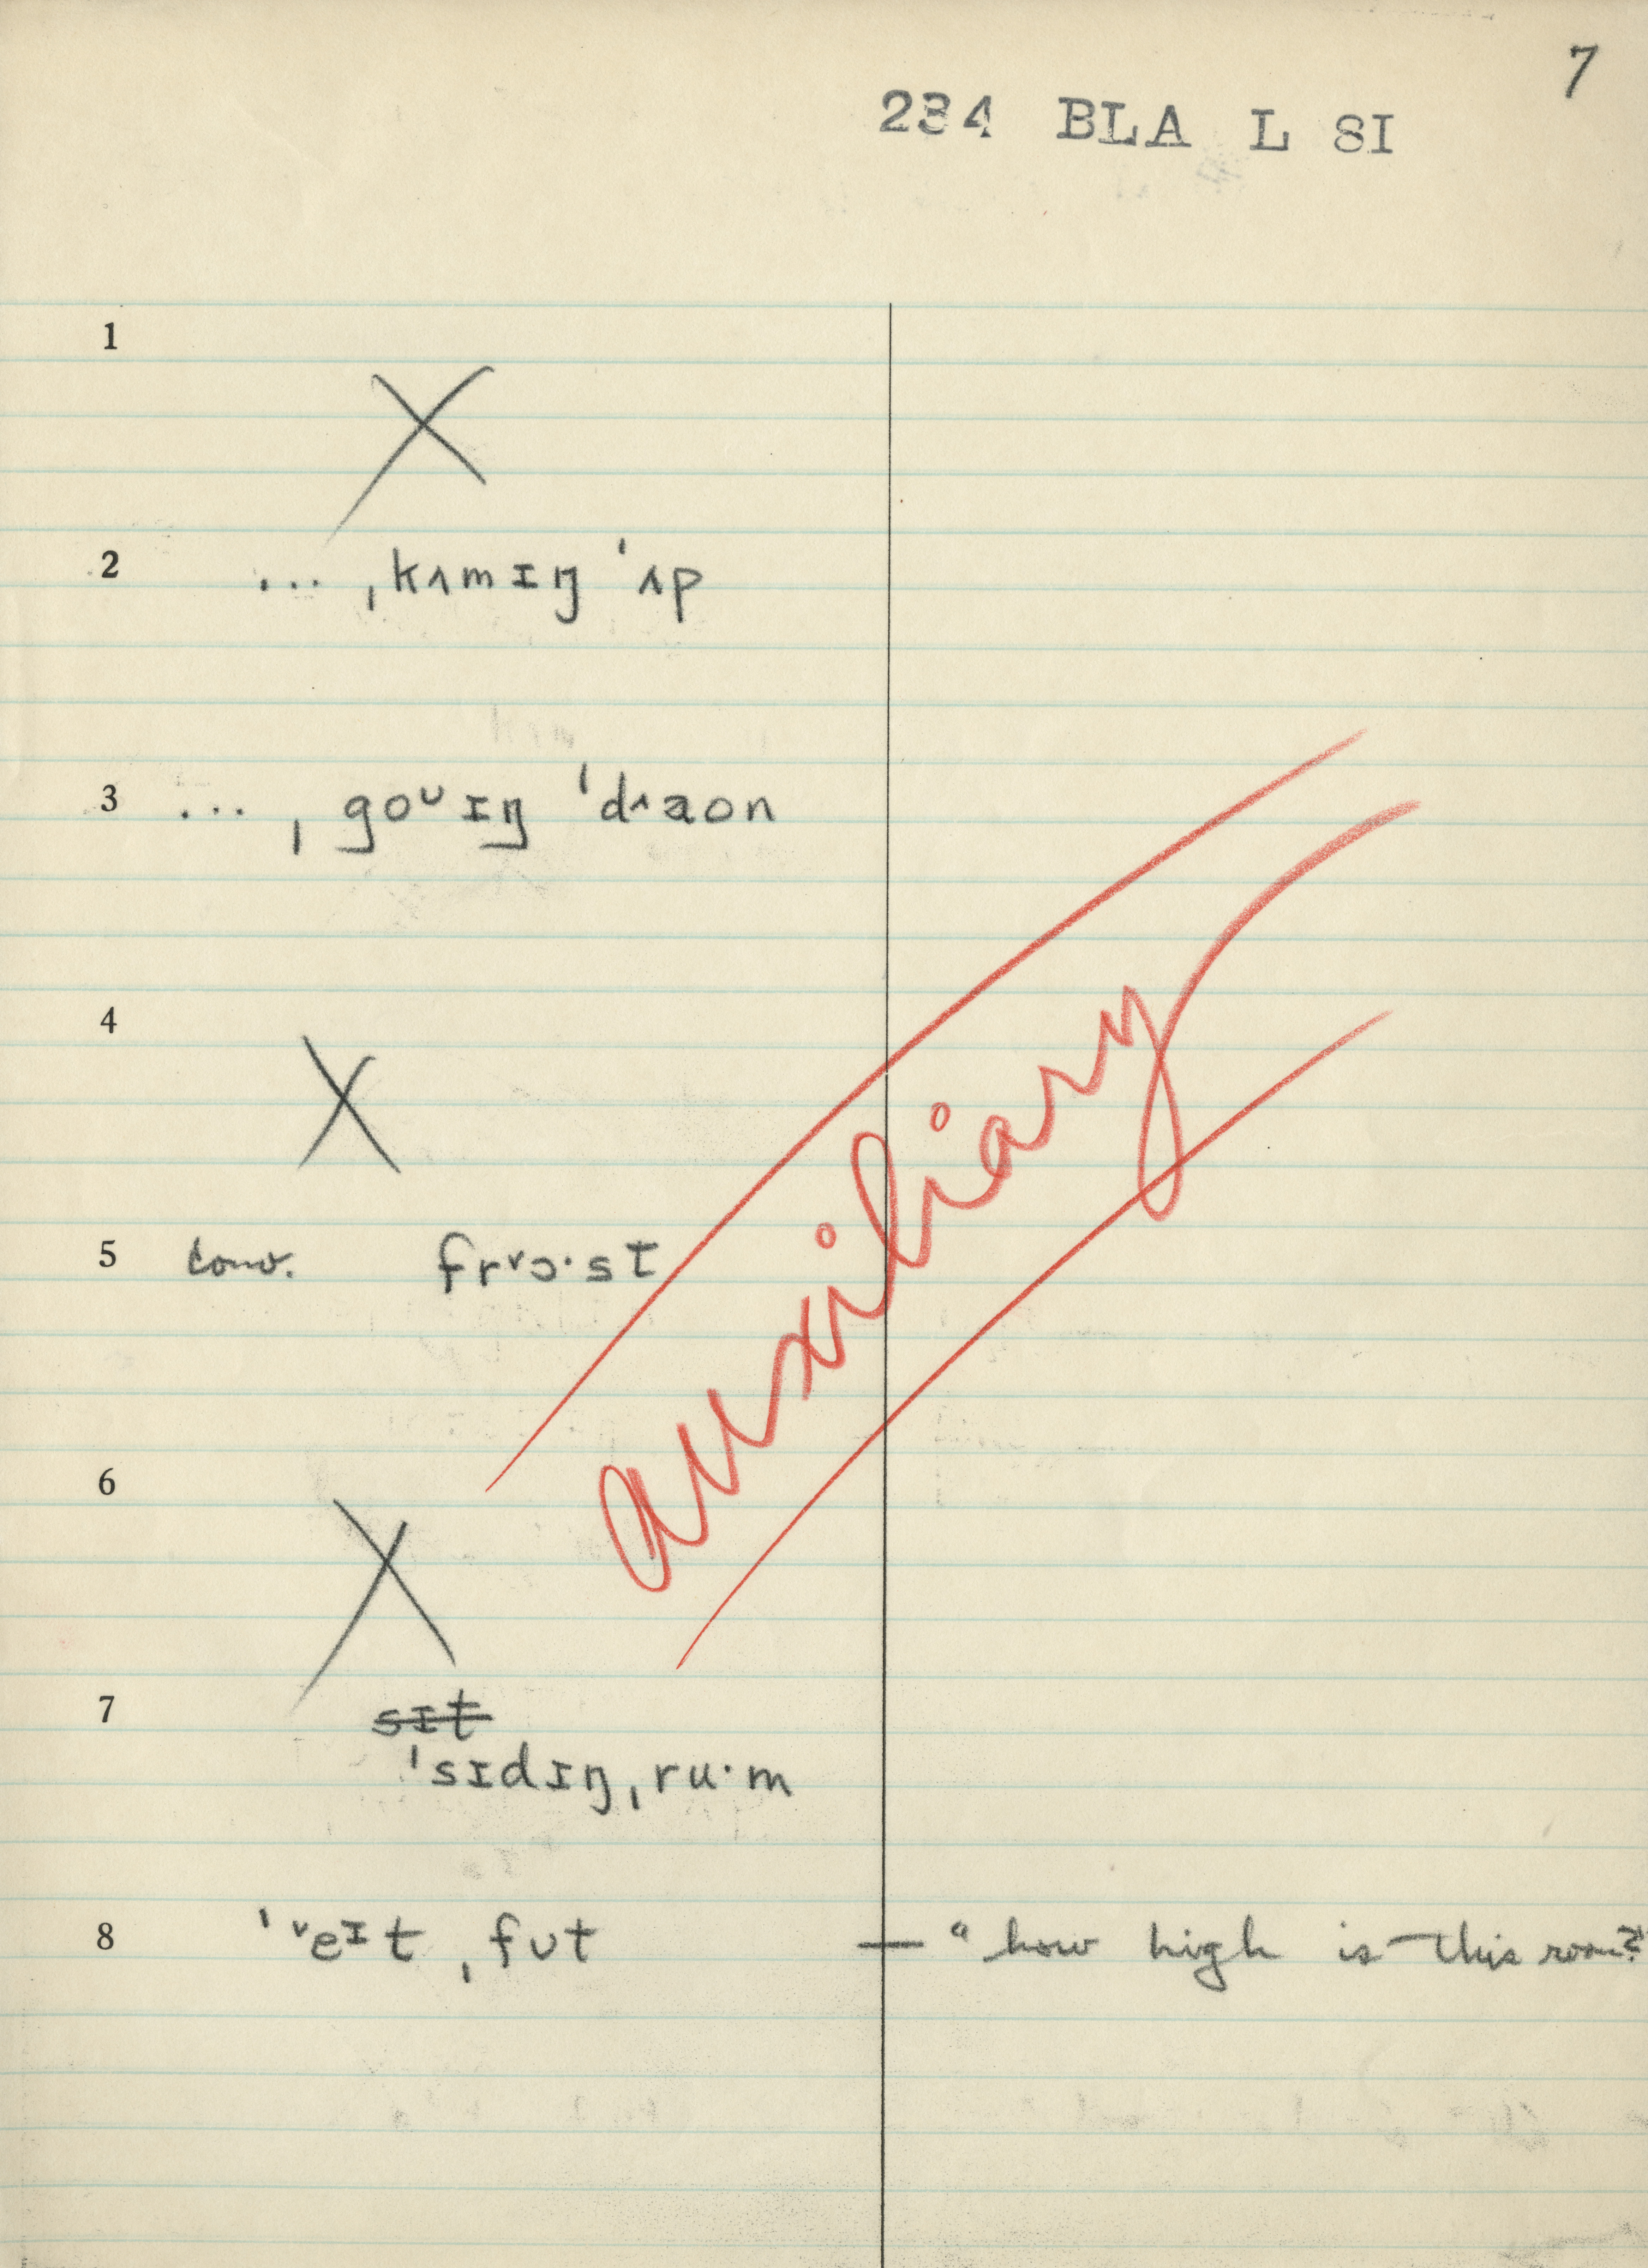 7
234 BLA L SI
1
X
2 ... ˌkʌmɪŋ ˈʌp
3 ... ˌgoᴜɪŋ ˈdʌaon
4
X
5 conv. frᵛɔ·st
auxiliary
6
X
7 sɪt
ˈsɪdɪŋˌru·m
8 ˈᵛeᴵt ˌfᴜt — "how high is this room?"